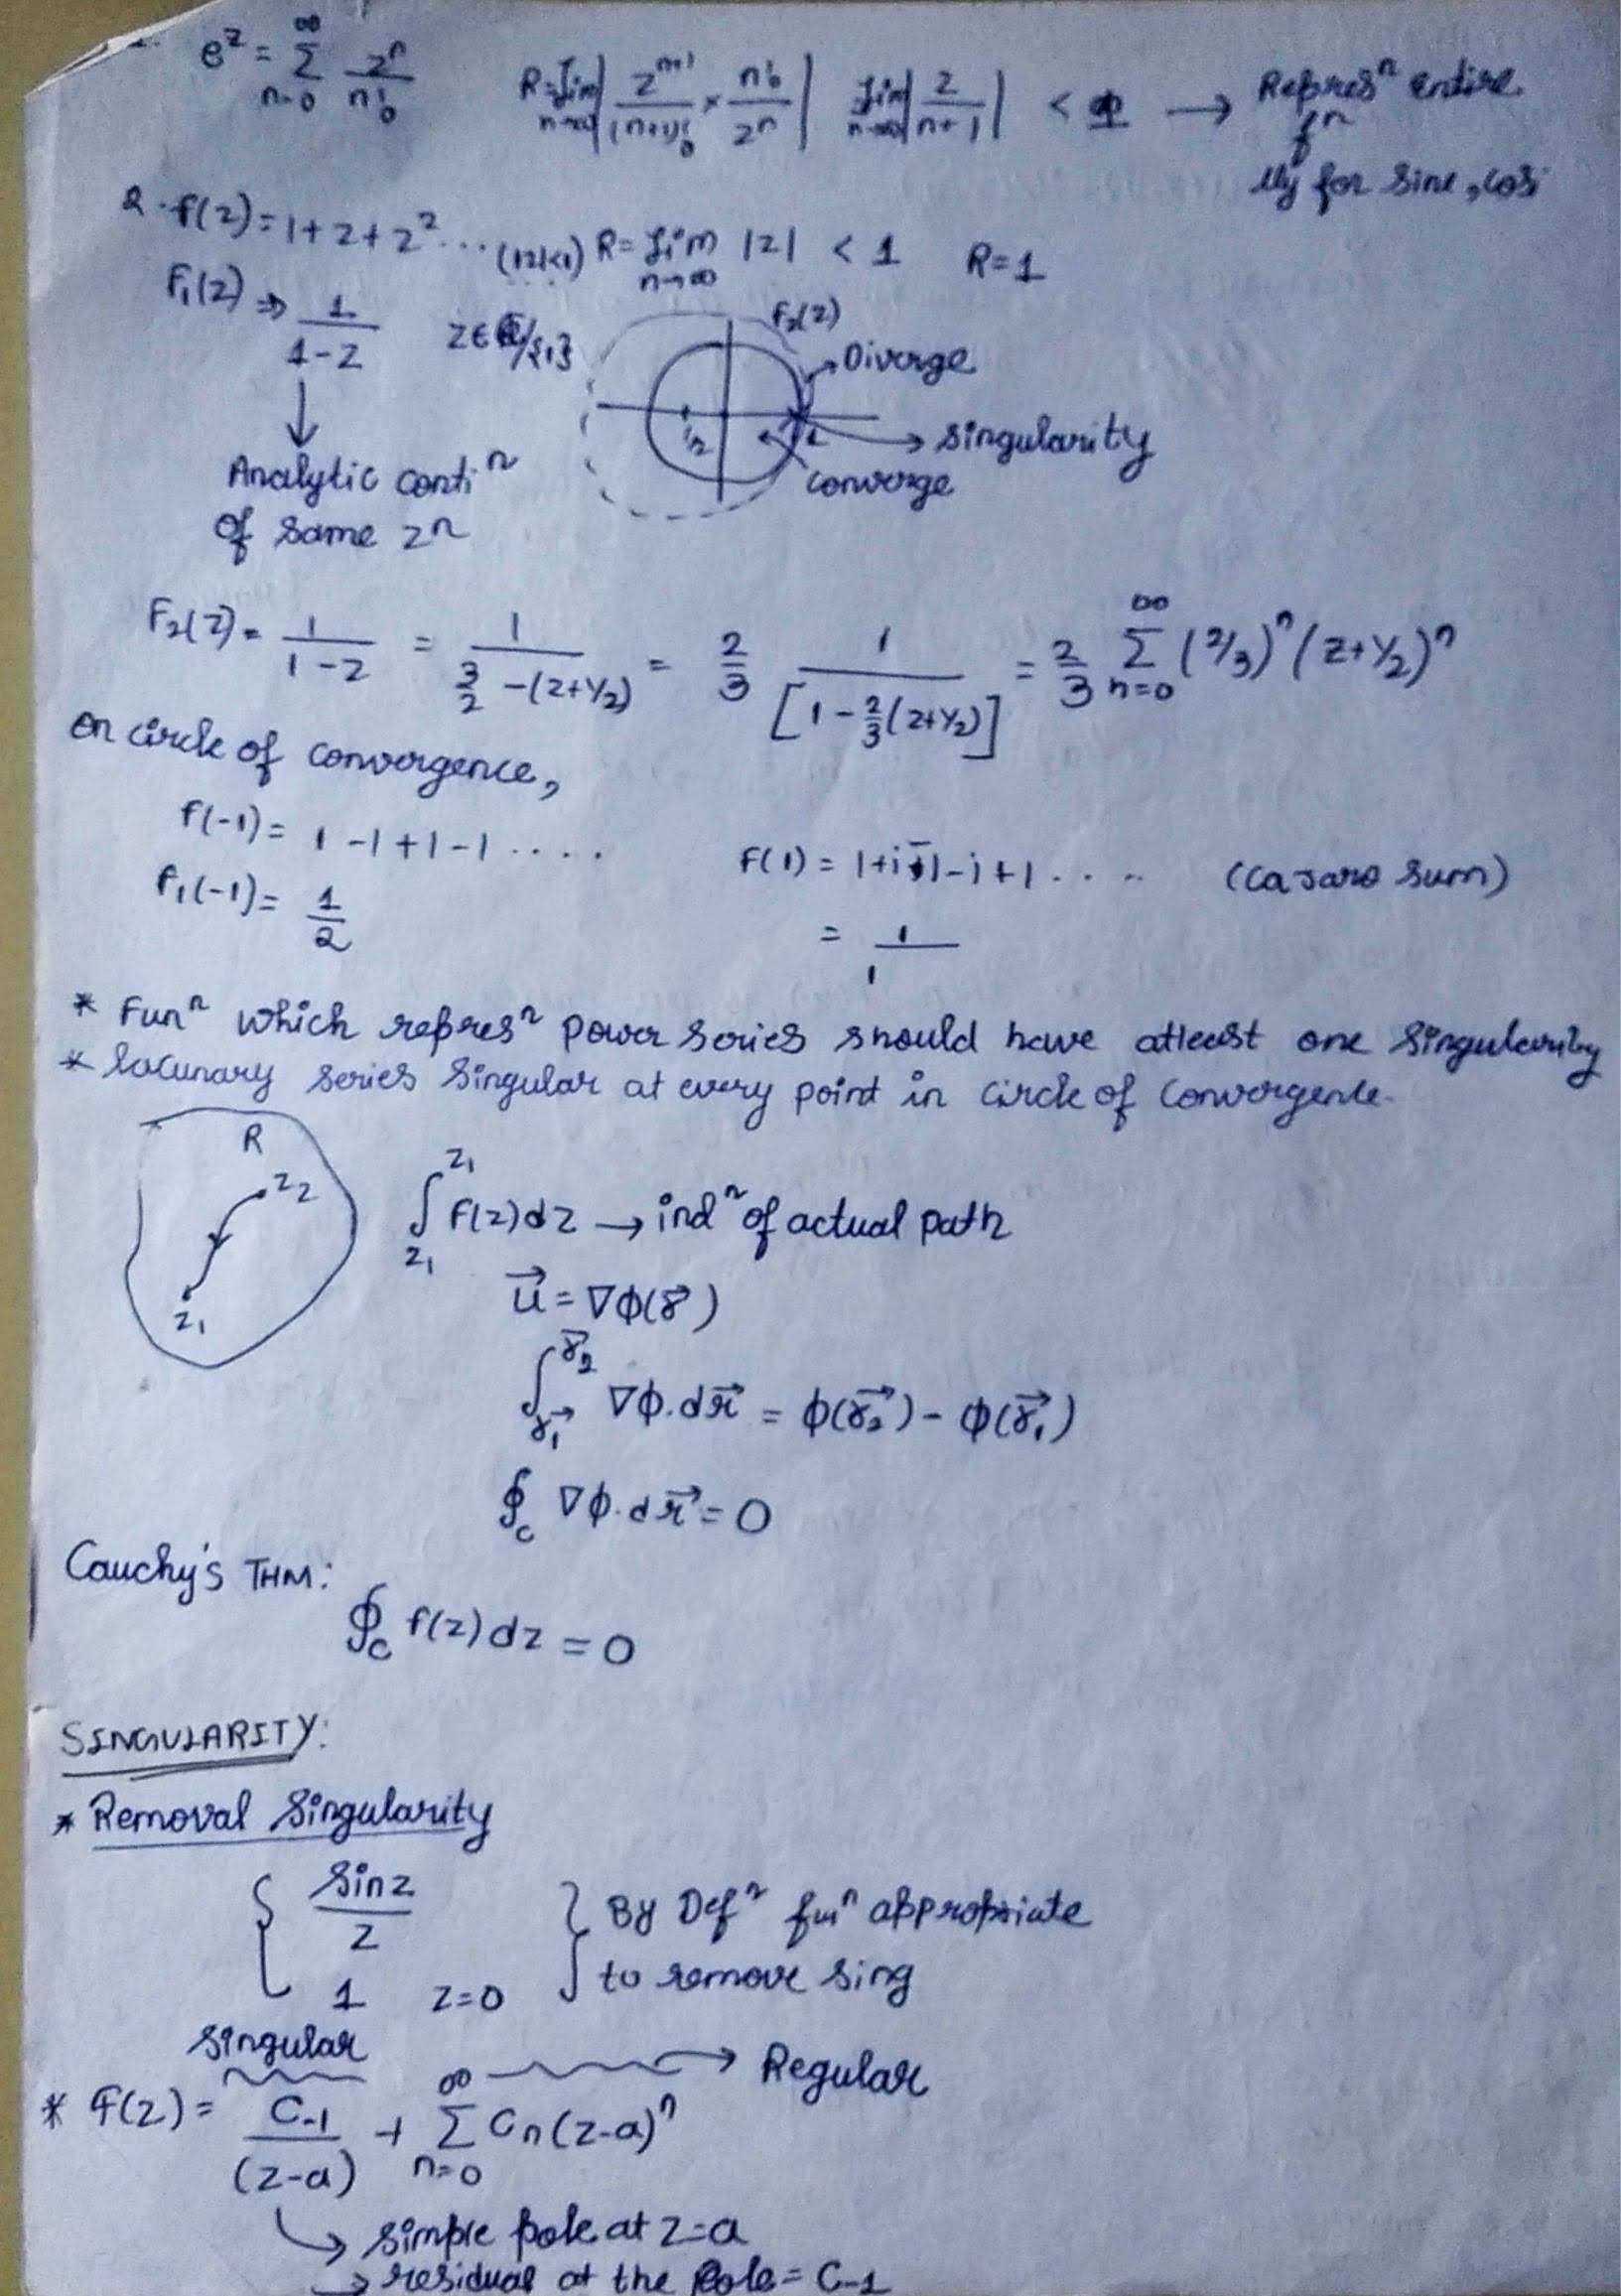 e^z = Σ_{n=0}^{∞} z^n/n!   R = lim_{n→∞} |z^{n+1}/(n+1)! × n!/z^n|   lim_{n→∞} |z/(n+1)| <   → Repres^n entire f^n
lly for sine, cos
2. f(z) = 1+z+z^2 ... (|z|<1)   R = lim_{n→∞} |z| < 1   R=1
F_1(z) ⇒ 1/(1-z)   z∈ℂ/{1}
F_2(z)
Diverge
singularity
1/2   1
converge
↓
Analytic conti^n
of same z^n
F_2(z) = 1/(1-z) = 1/(3/2 -(z+1/2)) = 2/3 1/[1 - 2/3(z+1/2)] = 2/3 Σ_{n=0}^{∞} (2/3)^n (z+1/2)^n
on circle of convergence,
f(-1) = 1 -1+1-1 ....
f_1(-1) = 1/2
F(1) = 1+i-1-i+1 . . . ..   (casaro sum)
= 1/1
* Fun^n which repres^n power series should have atleast one singularity
* lacunary series singular at every point in circle of convergence.
R
z_2
z_1
∫_{z_1}^{z_1} F(z)dz → ind^n of actual path
u⃗ = ∇ϕ(r⃗)
∫_{r⃗_1}^{r⃗_2} ∇ϕ.dr⃗ = ϕ(r⃗_2) - ϕ(r⃗_1)
∮_c ∇ϕ.dr⃗ = 0
Cauchy's THM:
∮_c f(z)dz = 0
SINGULARITY:
* Removal Singularity
{ sinz/z
1   z=0 } By Def^n fun^n appropriate
to remove sing
singular
* F(z) = C_{-1}/(z-a) + Σ_{n=0}^{∞} C_n(z-a)^n → Regular
↳ simple pole at z=a
→ residual at the Pole = C_{-1}